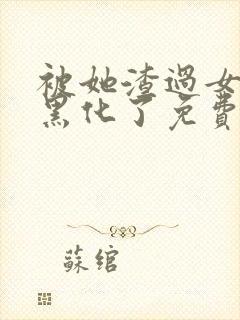 被她渣过女
黑化了免費
蘇綰